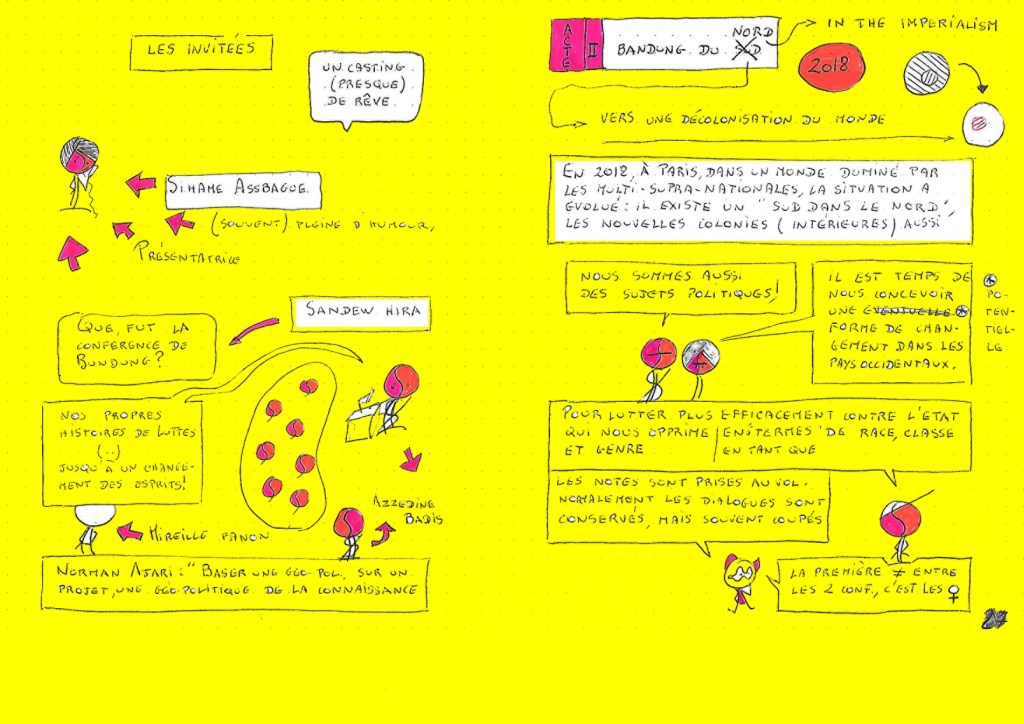 LES INVITÉES
UN CASTING
(PRESQUE)
DE RÊVE.
SIHAME ASSBAGUE.
(SOUVENT) PLEINE D'HUMOUR,
PRÉSENTATRICE
SANDEW HIRA
QUE, FUT LA
CONFERENCE DE
BUNDUNG?
NOS PROPRES
HISTOIRES DE LUTTES
(..)
JUSQU'À UN CHANGE-
MENT DES ESPRITS!
AZZEDINE
BADIS
MIREILLE FANON
NORMAN AJARI: "BASER UNE GÉO-POL., SUR UN
PROJET, UNE GÉO-POLITIQUE DE LA CONNAISSANCE
ACTE II
NORD
BANDUNG DU SUD
IN THE IMPERIALISM
2018
VERS UNE DÉCOLONISATION DU MONDE
EN 2018, À PARIS, DANS UN MONDE DOMINÉ PAR
LES MULTI-SUPRA-NATIONALES, LA SITUATION A
EVOLUÉ: IL EXISTE UN "SUD DANS LE NORD",
LES NOUVELLES COLONIES (INTÉRIEURES) AUSSI
NOUS SOMMES AUSSI
DES SUJETS POLITIQUES!
IL EST TEMPS DE
NOUS CONCEVOIR
UNE EVENTUELLE *
FORME DE CHAN-
GEMENT DANS LES
PAYS OCCIDENTAUX.
*
PO-
TEN-
TIEL-
LE
POUR LUTTER PLUS EFFICACEMENT CONTRE L'ETAT
QUI NOUS OPPRIME EN TERMES DE RACE, CLASSE
ET GENRE EN TANT QUE
LES NOTES SONT PRISES AU VOL.
NORMALEMENT LES DIALOGUES SONT
CONSERVÉS, MAIS SOUVENT COUPÉS
LA PREMIÈRE ≠ ENTRE
LES 2 CONF., C'EST LES ♀